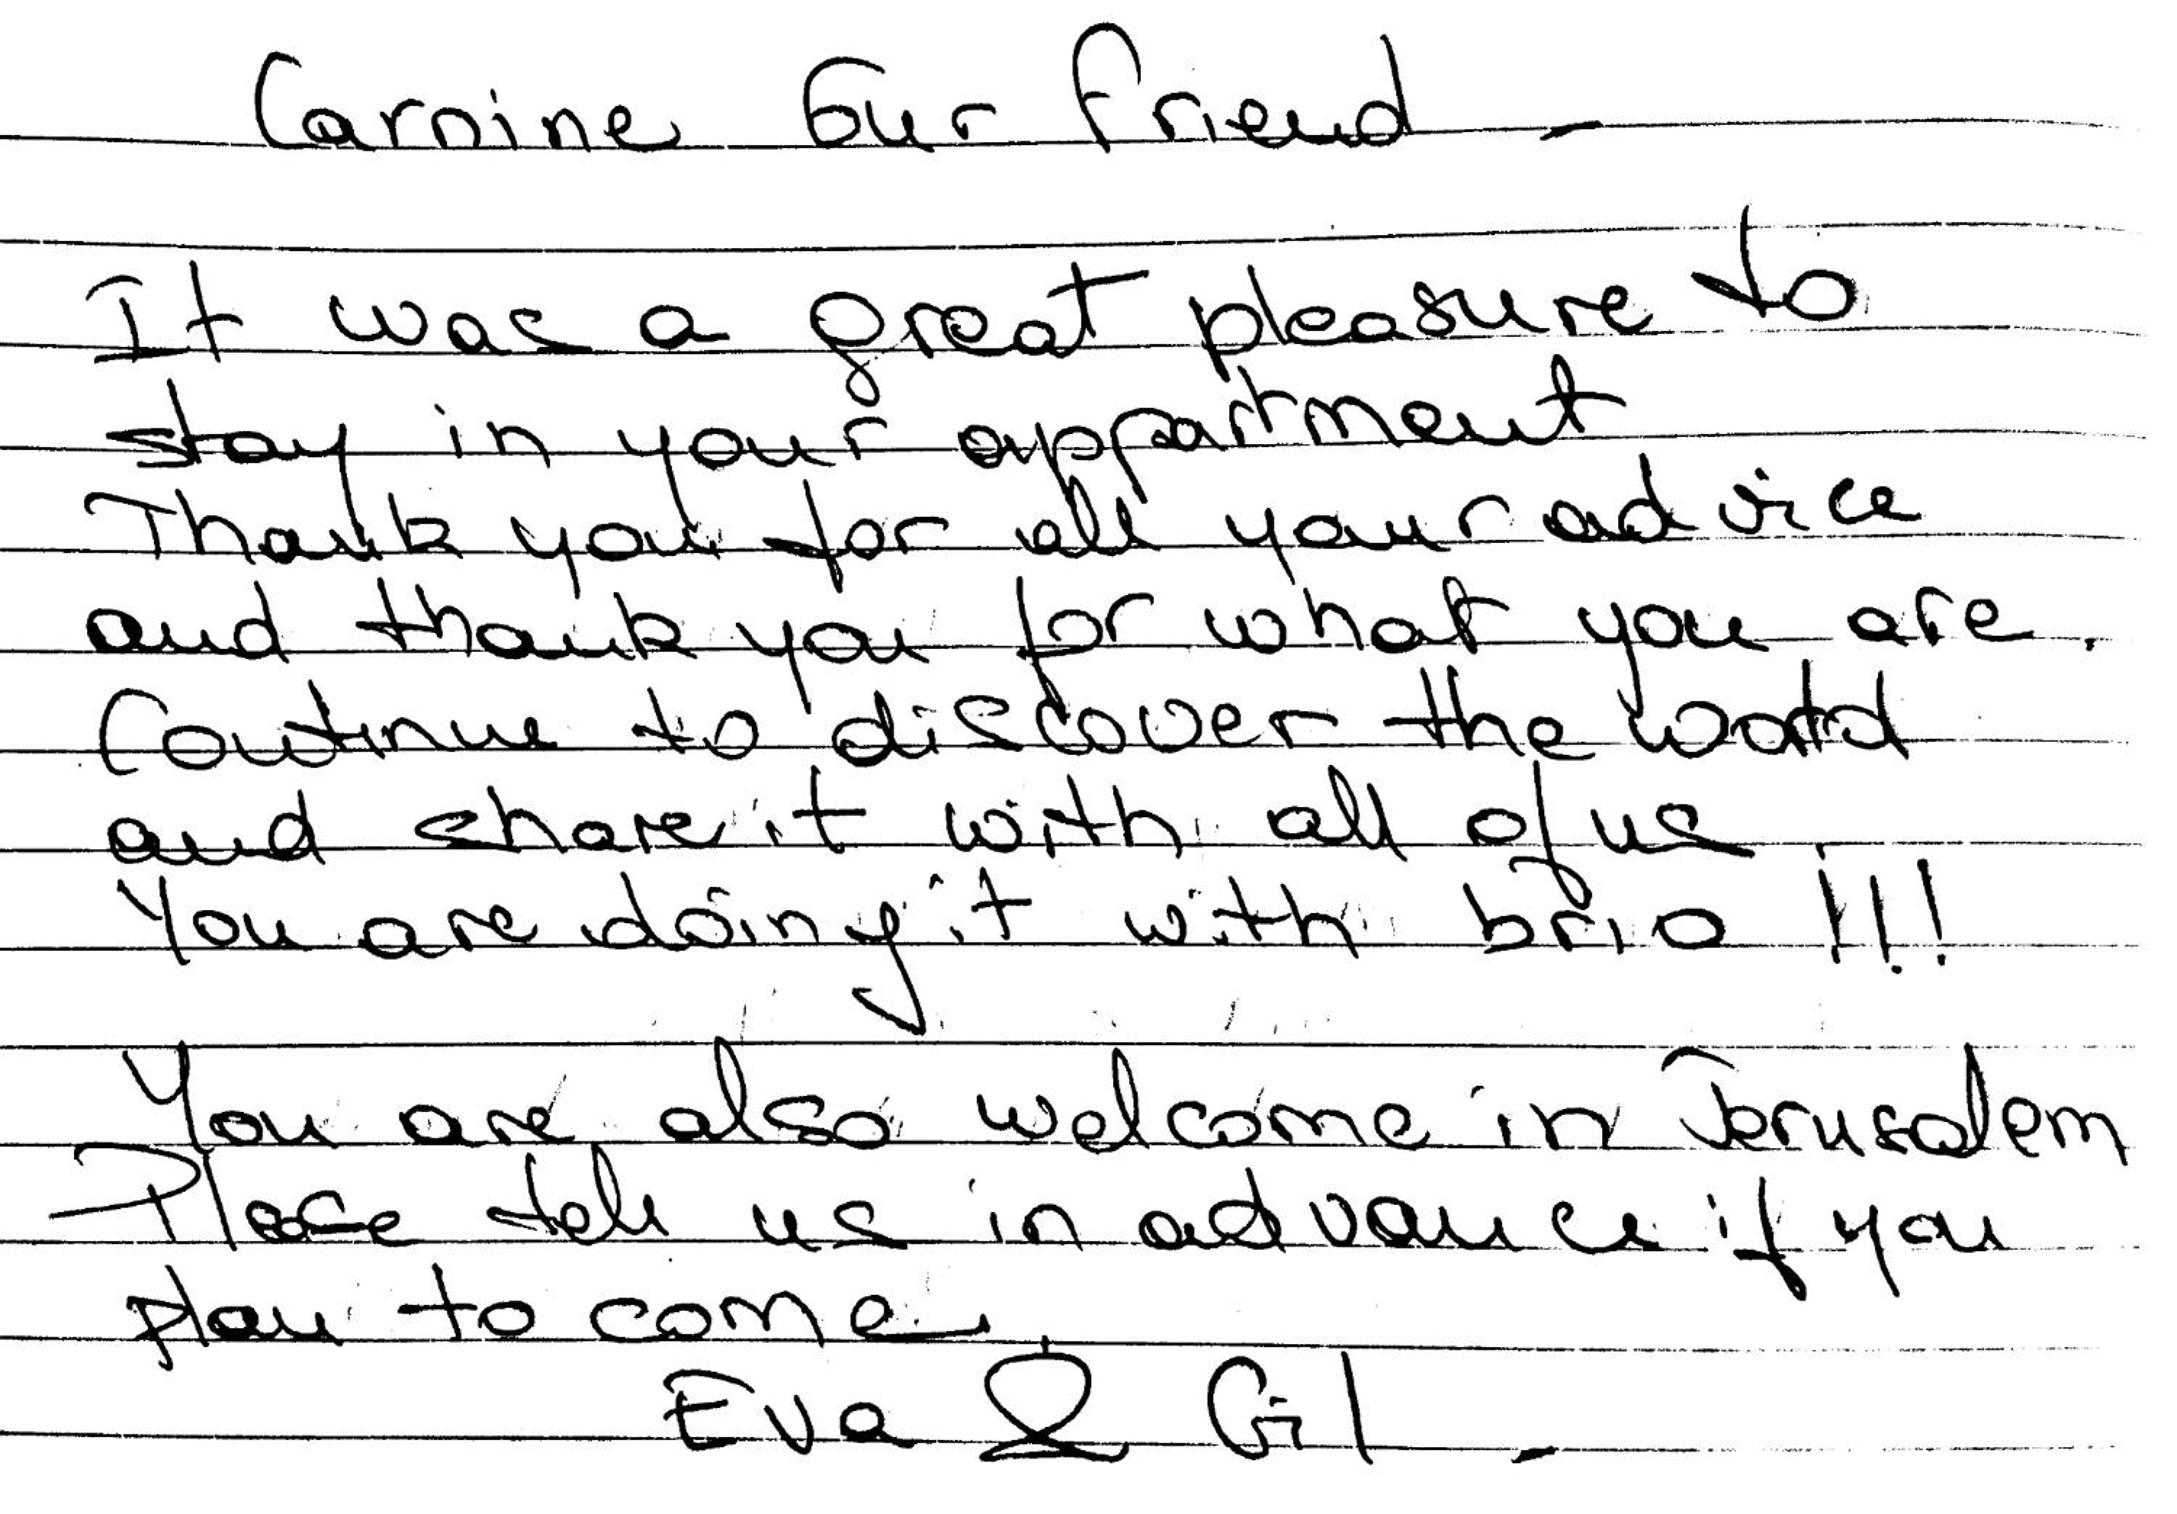 Carnine Our friend -
It was a great pleasure to
stay in your appartment
Thank you for all your advice
and thank you for what you are.
Continue to discover the world
and share it with all of us
You are doing it with brio !!!
You are also welcome in Jerusalem
Please tell us in advance if you
plan to come.
Eva & Gil -